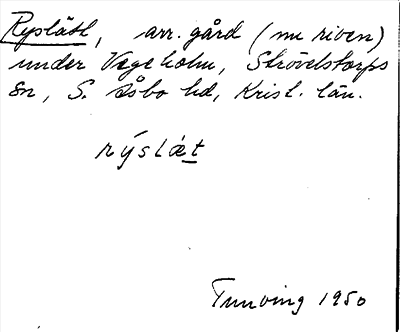 Ryslätt, arr. gård (nu riven)
under Vegeholm, Strövelstorps
sn, S. Åsbo hd, Krist. län.
rýslæt
Tunving 1950